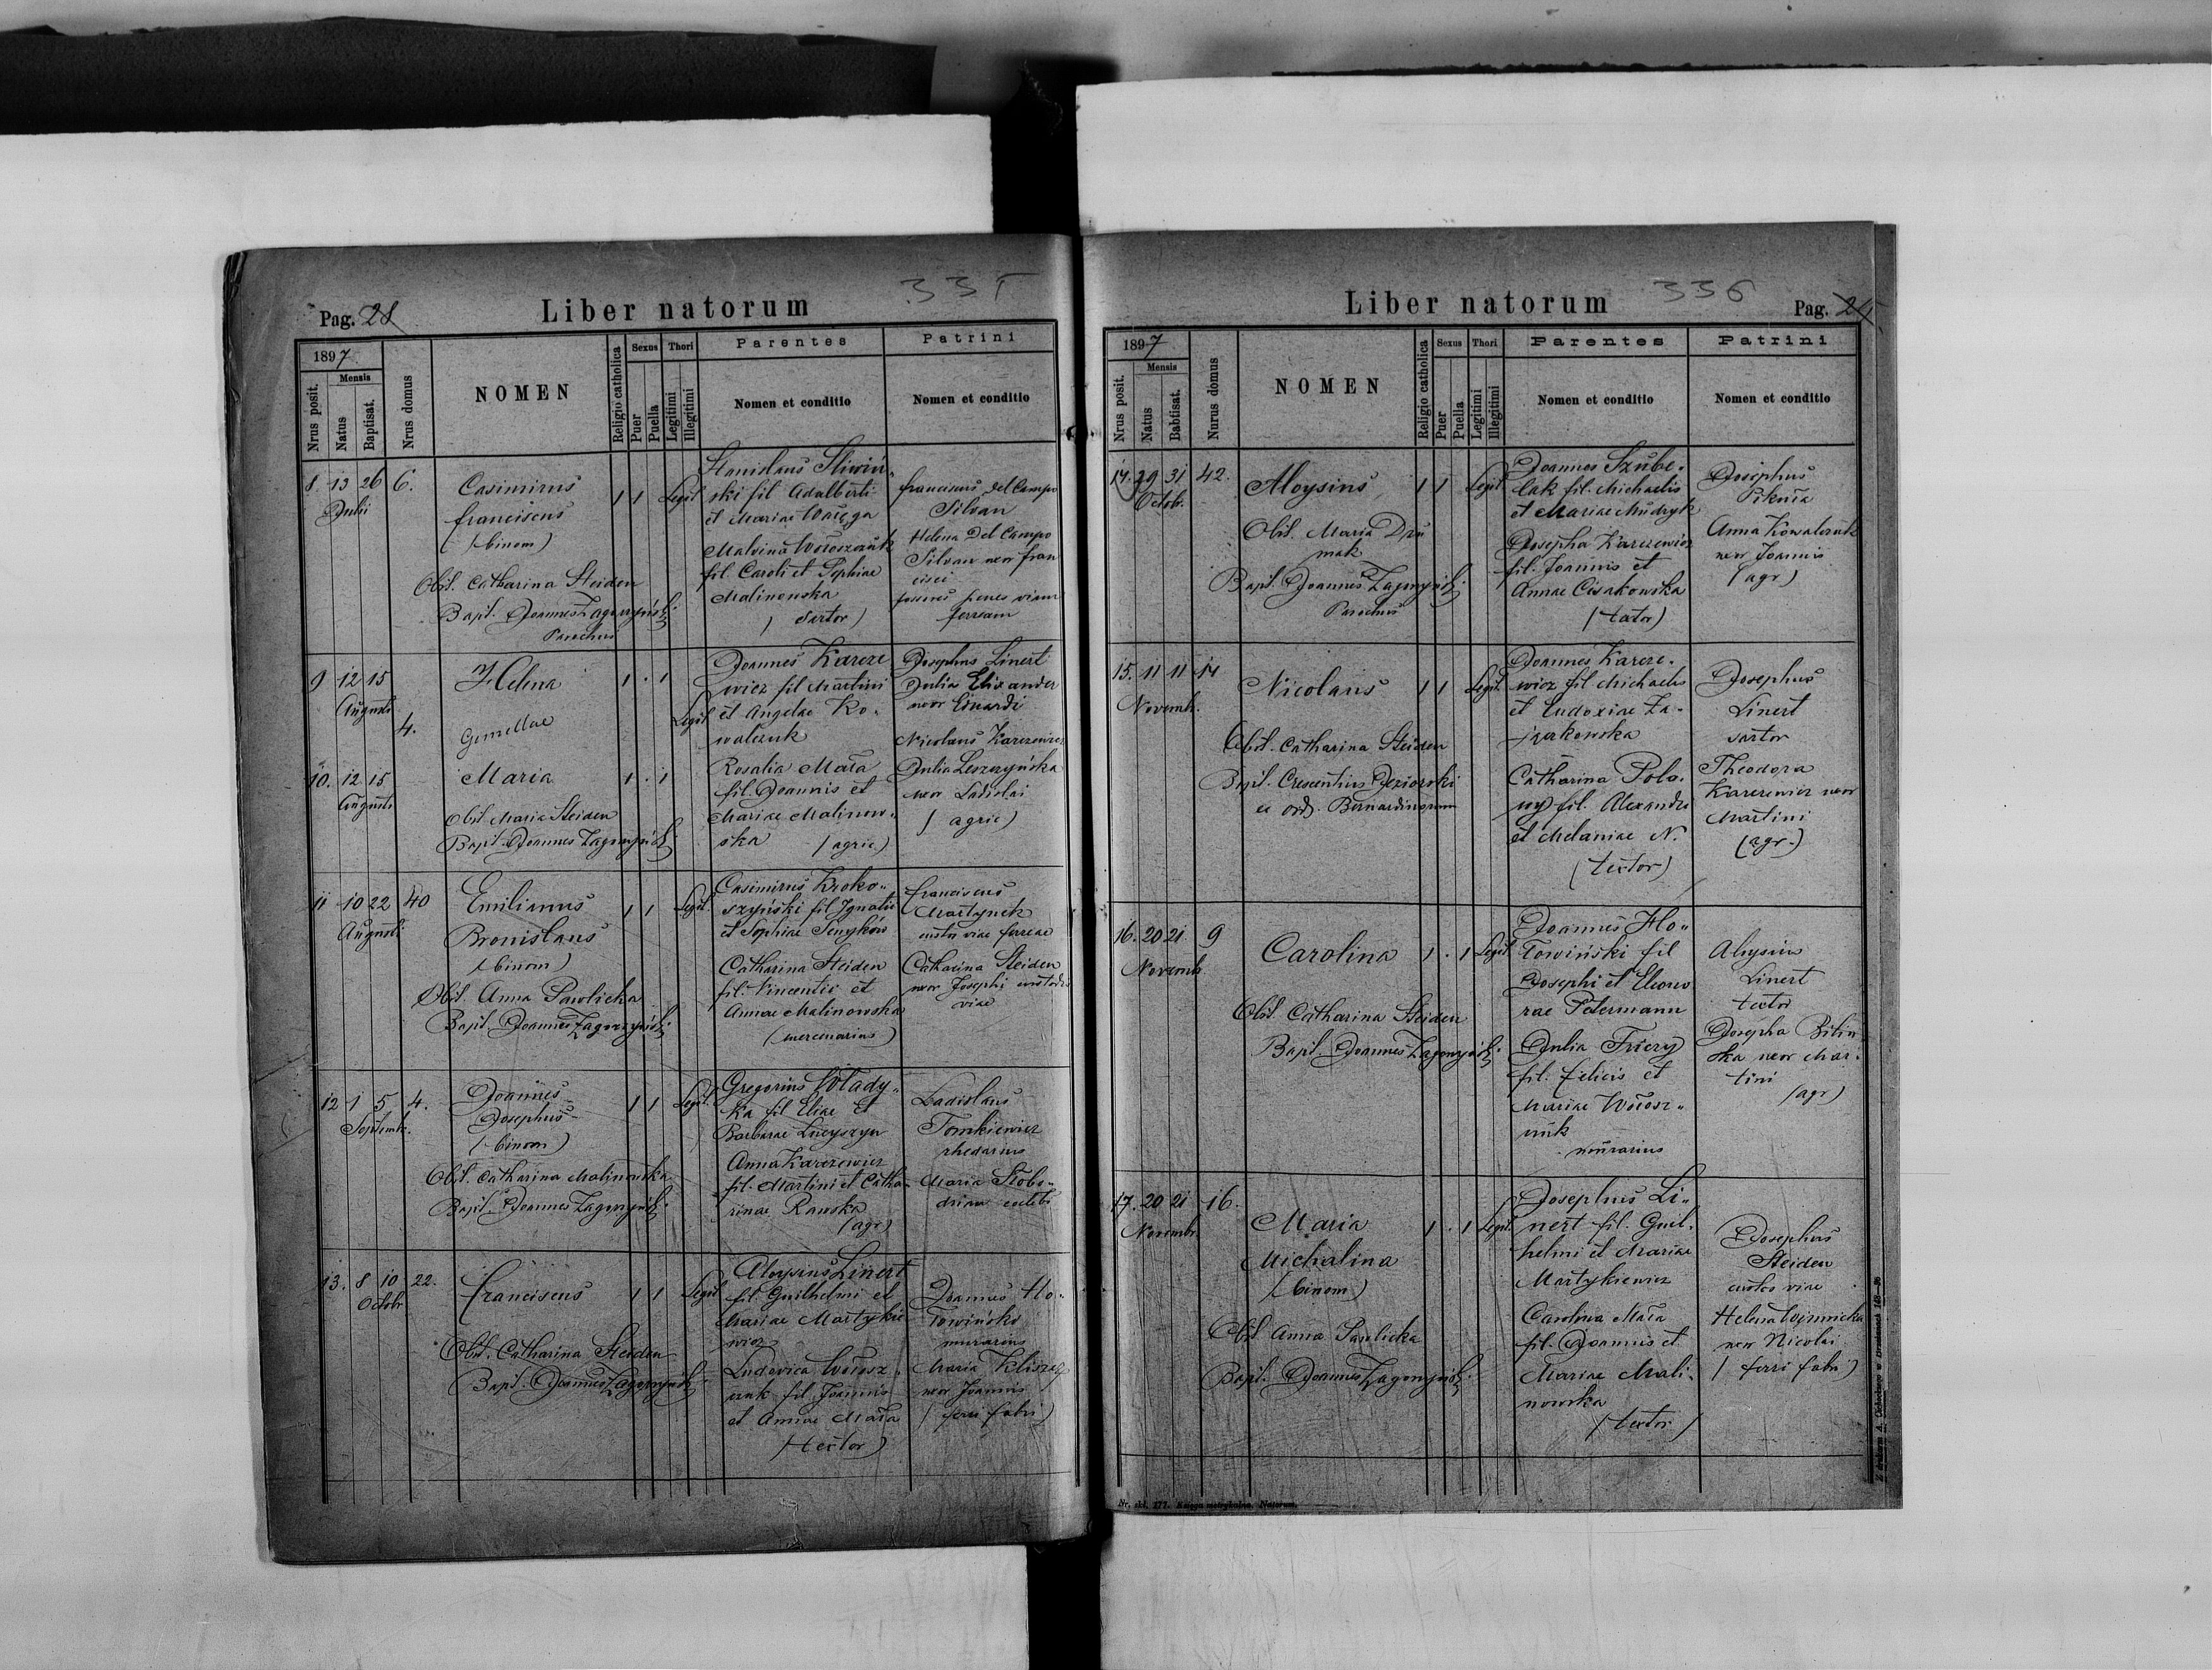 335
Pag. 28
Liber natorum
1897
Nrus posit.
Mensis
Natus
Baptisat.
Nrus domus
NOMEN
Religio catholica
Sexus
Puer
Puella
Thori
Legitimi
Illegitimi
Parentes
Nomen et conditio
Patrini
Nomen et conditio
8. 13 26 6.
Julii
Casimirus
Franciscus
(binom)
Obst. Catharina Steiden
Bapt. Joannes Zagórzyński
Parochus
1 1 Legit
Stanislaus Sliwiń-
ski fil Adalberti
et Mariae Waręga
Malvina Wołoszczuk
fil. Caroli et Sophiae
Malinowska
( Sartor )
Franciscus del Campo
Silvan
Helena Del Campo
Silvan uxor Fran
cisci
penes viam
ferream
9 12 15
Augusti
4.
Helena
Gemellae
1 . 1
Legit
10. 12 15
Augusti
Maria
1 . 1
Obst Maria Steiden
Bapt. Joannes Zagórzyński
Joannes Karcze
wicz fil Martini
et Angelae Ko-
walczuk
Rosalia Mała
fil. Joannis et
Mariae Malinow-
ska (agric.)
Josephus Linert
Julia Elixander
uxor Eduardi
Nicolaus Karczewicz
Julia Leszczyńska
uxor Ladislai
( agric )
11 10 22 40
Augusti
Emilianus
Bronislaus
(binom)
Obst. Anna Pawlicka
Bapt. Joannes Zagórzyński
1 1 Legit.
Casimirus Kroko-
szyński fil Ignatii
et Sophiae Senyków
Catharina Steiden
fil. Vincentii et
Annae Malinowska
(mercenarius)
Franciscus
Martynek
custos viae ferreae
Catharina Steiden
uxor Josephi custodis
viae
12 1 5 4.
Septemb.
Joannes
Josephus
(binom)
Obst. Catharina Malinowska
Bapt. Joannes Zagórzyński
1 1 Legit.
Gregorius Włady-
ka fil Eliae et
Barbarae Lucyszyn
Anna Karczewicz
fil. Martini et Catha-
rinae Rawska
(agr)
Ladislaus
Tomkiewicz
rhedarius
Maria Słobo-
drian
13. 8 10 22.
Octobr
Franciscus
Obst. Catharina Steiden
Bapt. Joannes Zagórzyński
1 1 Legit
Aloysius Linert
fil. Guilhelmi et
Mariae Martykie
wicz
Ludovica Wołosz
czuk fil Joannis
et Annae Mała
(tector)
Joannes Ho-
łowiński
murarius
Maria Kliszcz
uxor Joannis
( ferri fabri )
336
Liber natorum
Pag. 24
1897
Nrus posit.
Mensis
Natus
Babtisat.
Nurus domus
NOMEN
Religio catholica
Sexus
Puer
Puella
Thori
Legitimi
Illegitimi
Parentes
Nomen et conditio
Patrini
Nomen et conditio
14. 29 31 42.
Octob.
Aloysius
Obst. Maria Dzu
mak
Bapt. Joannes Zagórzyński
Parochus
1 1 Legit
Joannes Szube-
lak fil. Michaelis
et Mariae Mudryk
Josepha Karczewicz
fil. Joannis et
Annae Cisakowska
(tector)
Josephus
Piknia
Anna Kowalczuk
uxor Joannis
(agr)
15. 11 11 14
Novemb.
Nicolaus
Obst. Catharina Steiden
Bapt. Crescentius Dziorski
ex ord. Bernardinorum
1 1 Legit.
Joannes Karcze-
wicz fil Michaelis
et Eudoxiae Za-
jączkowska
Catharina Polo-
wy fil. Alexandri
et Melaniae N.
(tector)
Josephus
Linert
sartor
Theodora
Karczewicz uxor
Martini
(agr.)
16. 20 21 9
Novemb
Carolina
Obst Catharina Steiden
Bapt Joannes Zagórzyński
1 . 1 Legit
Joannes Ho-
łowiński fil
Josephi et Eleono
rae Petermann
Julia Friczy
fil. Felicis et
Mariae Wołosz-
uuk
murarius
Aloysius
Linert
tector
Josepha Bilin
ska uxor Mar-
tini
(agr)
17. 20 21 16.
Novembr
Maria
Michalina
(binom)
Obst Anna Pawlicka
Bapt. Joannes Zagórzyński
1 . 1 Legit.
Josephus Li-
nert fil. Guil-
helmi et Mariae
Martykiewicz
Carolina Mała
fil. Joannis et
Mariae Mali-
nowska
(tector)
Josephus
Steiden
custos viae
Helena Winnicka
uxor Nicolai
( ferri fabri )
Nr. skł. 177. Księga metrykalna. Natorum.